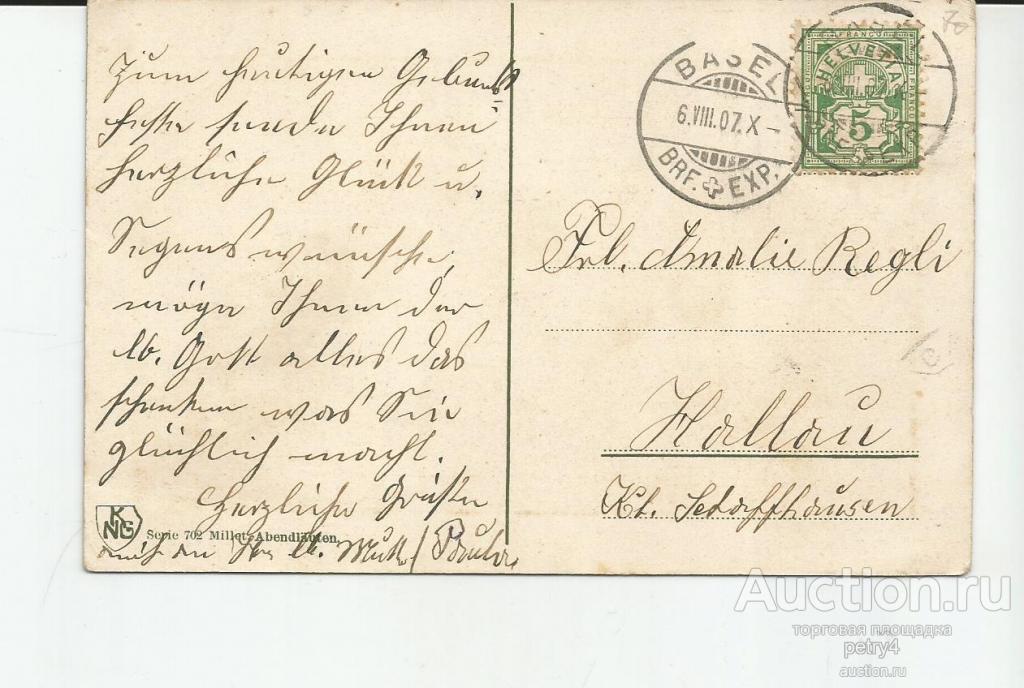 Zum heutigen Geburts
feste sende Ihnen
herzliche Glück u.
Segenswünsche,
möge Ihnen der
lb. Gott alles das
schenken was Sie
glücklich macht.
Herzliche Grüße
auch an Ihre lb. Mutter Paula
KNG
Serie 702 Millet-Abendläuten.
BASEL
6.VIII.07.X-
BRF. EXP.
FRANCO
HELVETIA
FRANCO
5
70
Frl. Amalie Regli
Hallau
Kt. Schaffhausen
Auction.ru
торговая площадка
petry4
auction.ru